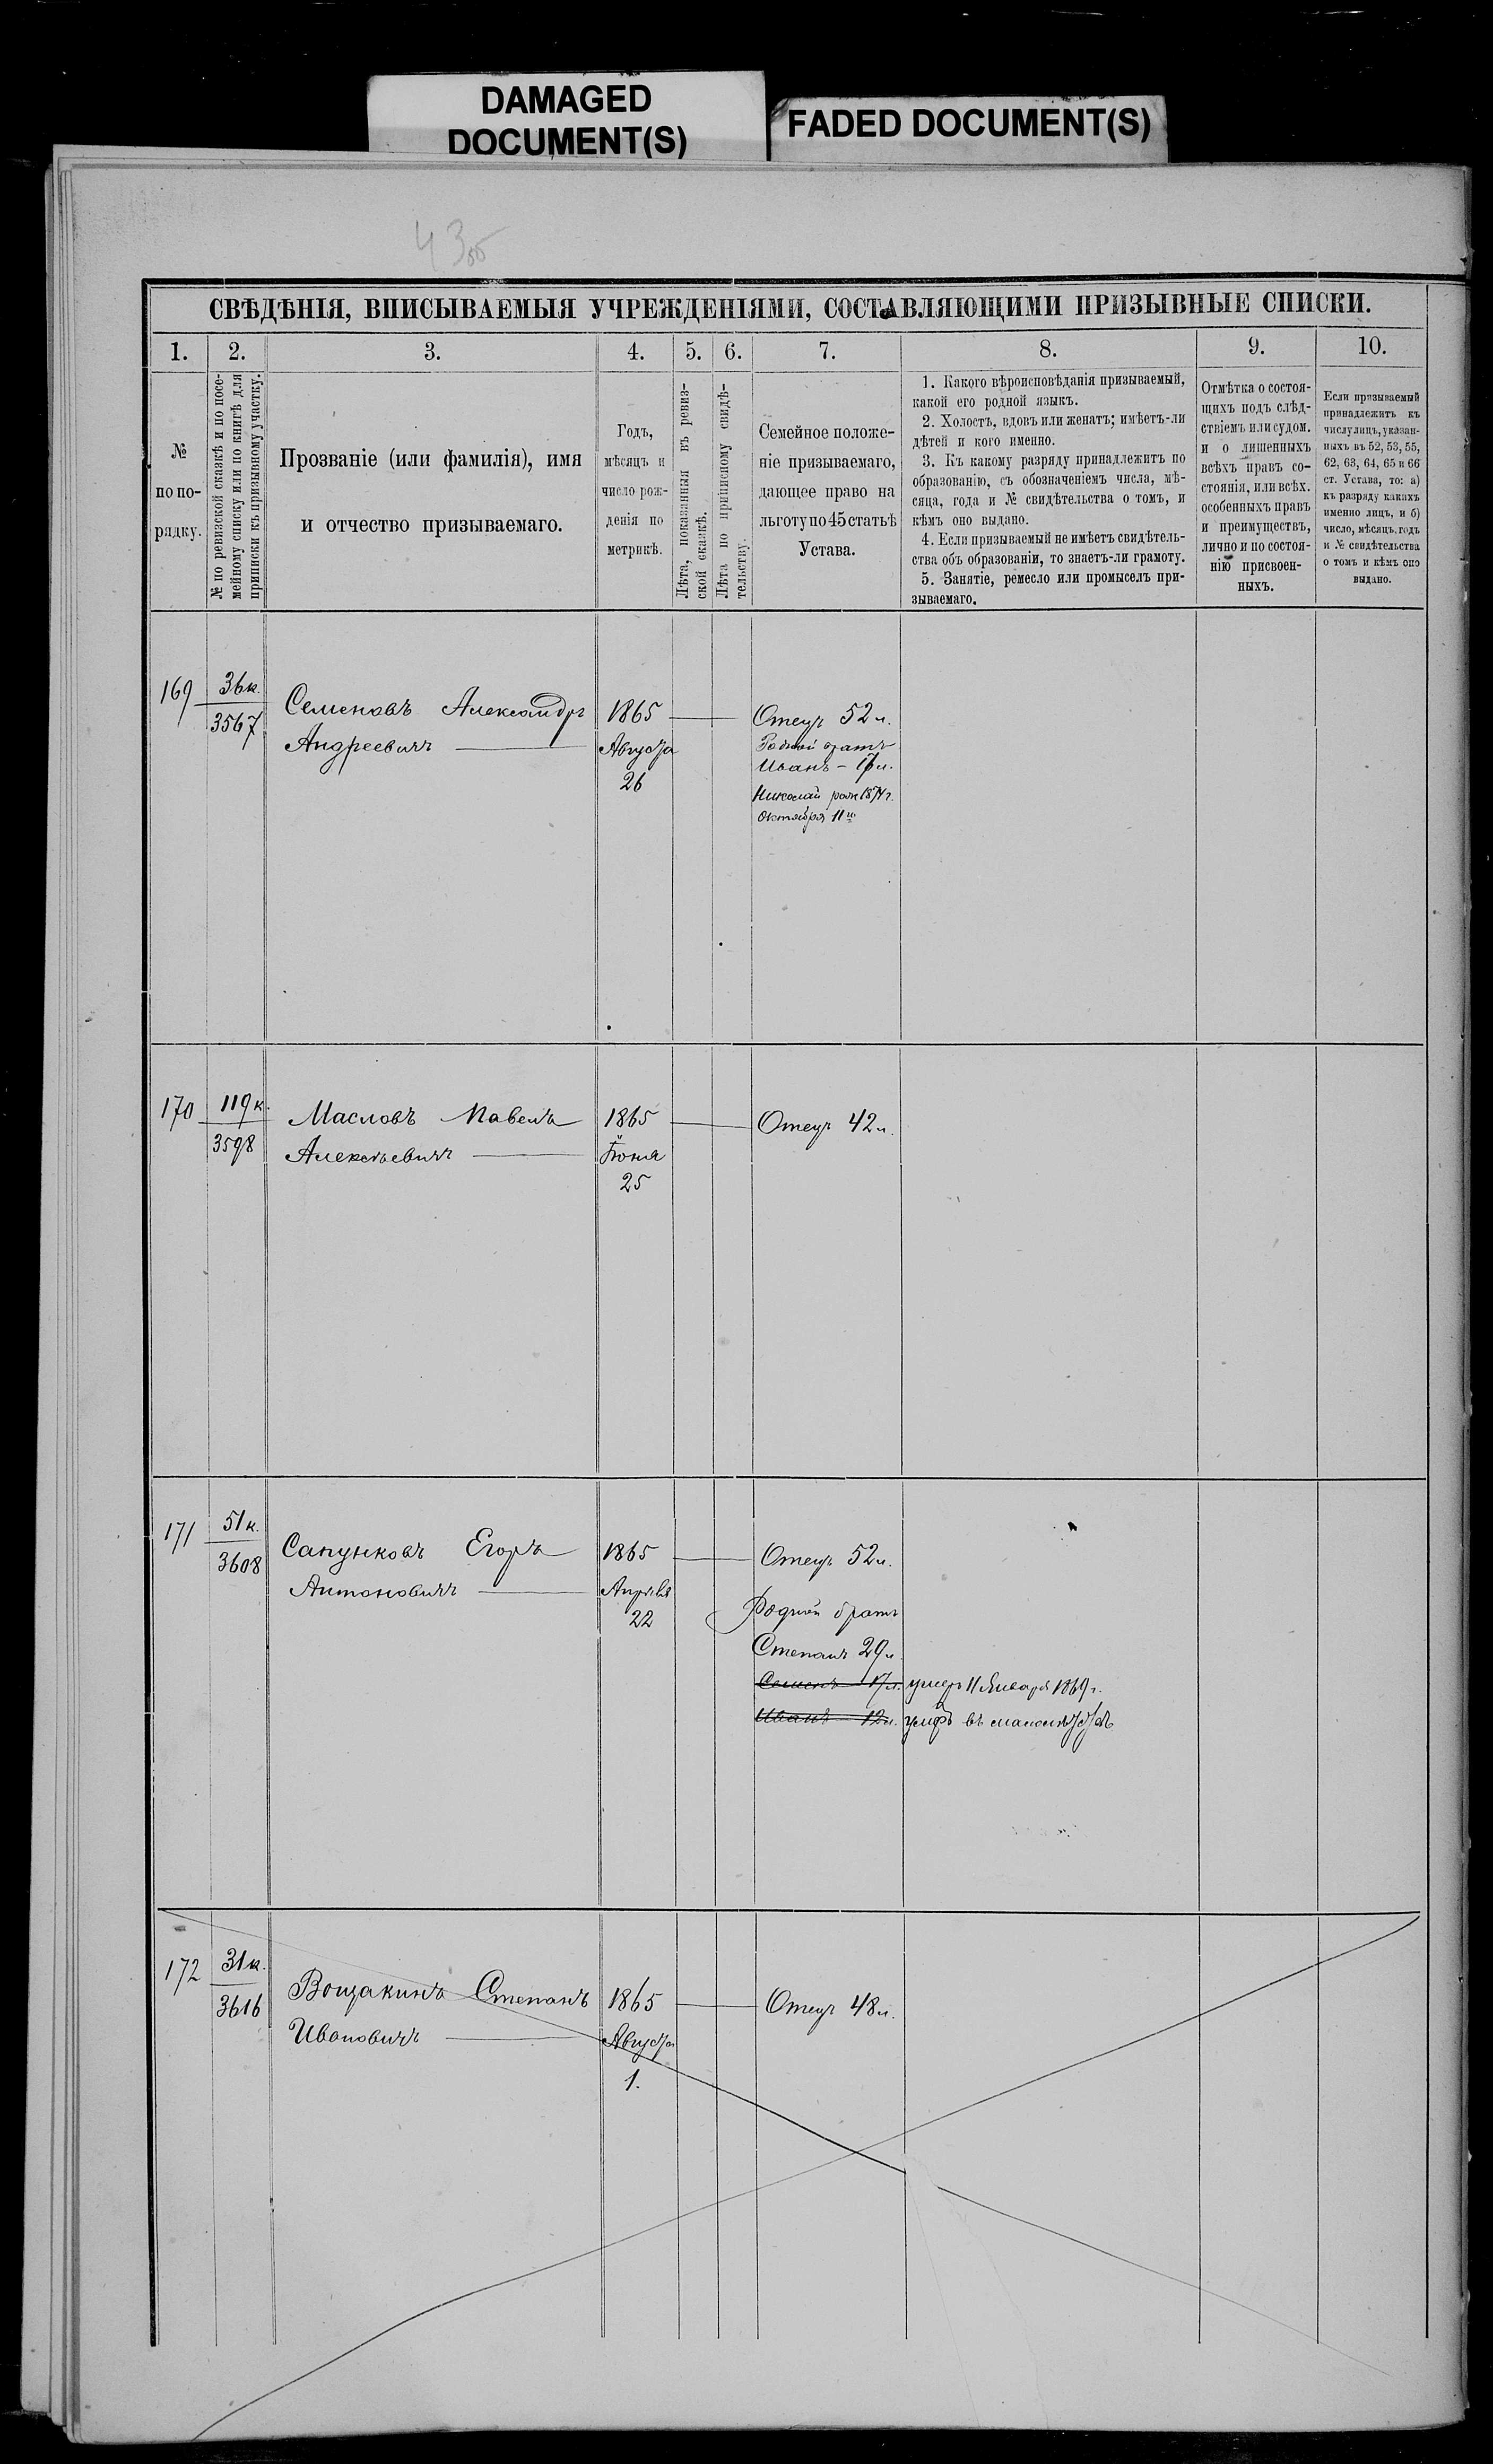 DAMAGED
DOCUMENT(S)
FADED DOCUMENT(S)
43об
СВѢДѢНІЯ, ВПИСЫВАЕМЫЯ УЧРЕЖДЕНІЯМИ, СОСТАВЛЯЮЩИМИ ПРИЗЫВНЫЕ СПИСКИ.
1. 2. 3. 4. 5. 6. 7. 8. 9. 10.
№
по по-
рядку.
№ по ревизской сказкѣ и по посе-
мейному списку или по книгѣ для
приписки къ призывному участку.
Прозваніе (или фамилія), имя
и отчество призываемаго.
Годъ,
мѣсяцъ и
число рож-
денія по
метрикѣ.
Лѣта, показанныя въ ревиз-
ской сказкѣ.
Лѣта по приписному свидѣ-
тельству.
Семейное положе-
ніе призываемаго,
дающее право на
льготу по 45 статьѣ
Устава.
1. Какого вѣроисповѣданія призываемый,
какой его родной языкъ.
2. Холостъ, вдовъ или женатъ; имѣетъ-ли
дѣтей и кого именно.
3. Къ какому разряду принадлежитъ по
образованію, съ обозначеніемъ числа, мѣ-
сяца, года и № свидѣтельства о томъ, и
кѣмъ оно выдано.
4. Если призываемый не имѣетъ свидѣтель-
ства объ образованіи, то знаетъ-ли грамоту.
5. Занятіе, ремесло или промыселъ при-
зываемаго.
Отмѣтка о состоя-
щихъ подъ слѣд-
ствіемъ или судом.
и о лишенныхъ
всѣхъ правъ со-
стоянія, или всѣх.
особенныхъ правъ
и преимуществъ,
лично и по состоя-
нію присвоен-
ныхъ.
Если призываемый
принадлежитъ къ
числу лицъ, указан-
ныхъ въ 52, 53, 55,
62, 63, 64, 65 и 66
ст. Устава, то: а)
къ разряду какихъ
именно лицъ, и б)
число, мѣсяцъ, годъ
и № свидѣтельства
о томъ и кѣмъ оно
выдано.
169 36к. 3567
Семеновъ Александръ
Андреевичъ
1865
Августа
26
Отецъ 52 л.
Родной братъ
Иванъ – 17 л.
Николай 1874 г.
Октября 11
170 119к. 3598
Масловъ Павелъ
Алексѣевичъ
1865
Іюня
25
Отецъ 42 л.
171 51к. 3608
Сапунковъ Егоръ
Антоновичъ
1865
Апрѣля
22
Отецъ 52 л.
Родной братъ
Степанъ 29 л.
Семенъ 17 л. умеръ 11 Января 1869 г.
Иванъ 12 л. умеръ въ
172 31к. 3616
Вощакинъ Степанъ
Ивановичъ
1865
Августа
1.
Отецъ 48 л.